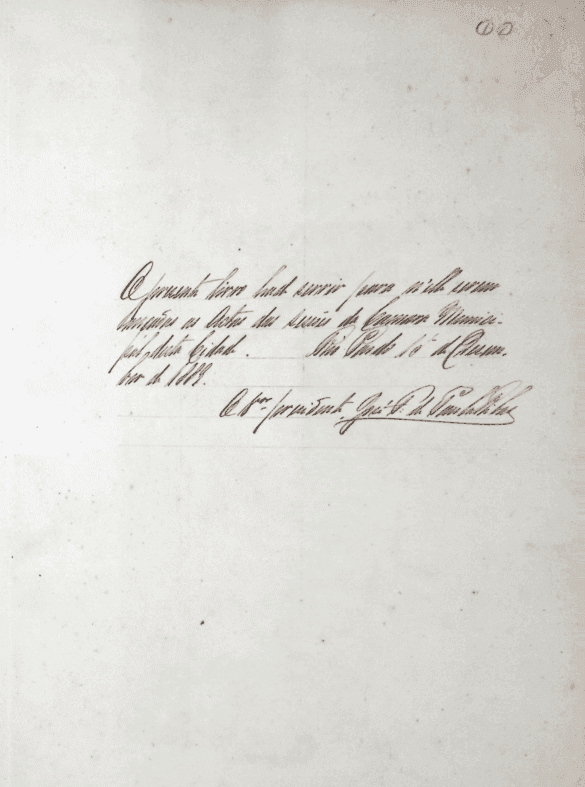 O presente livro hade servir para n'elle serem
lançadas as Actas das sessões da Camara Munici-
pal desta Cidade. Rio Pardo 16 de Dezem-
bro de 1889.
O Vor. presidente José P. de